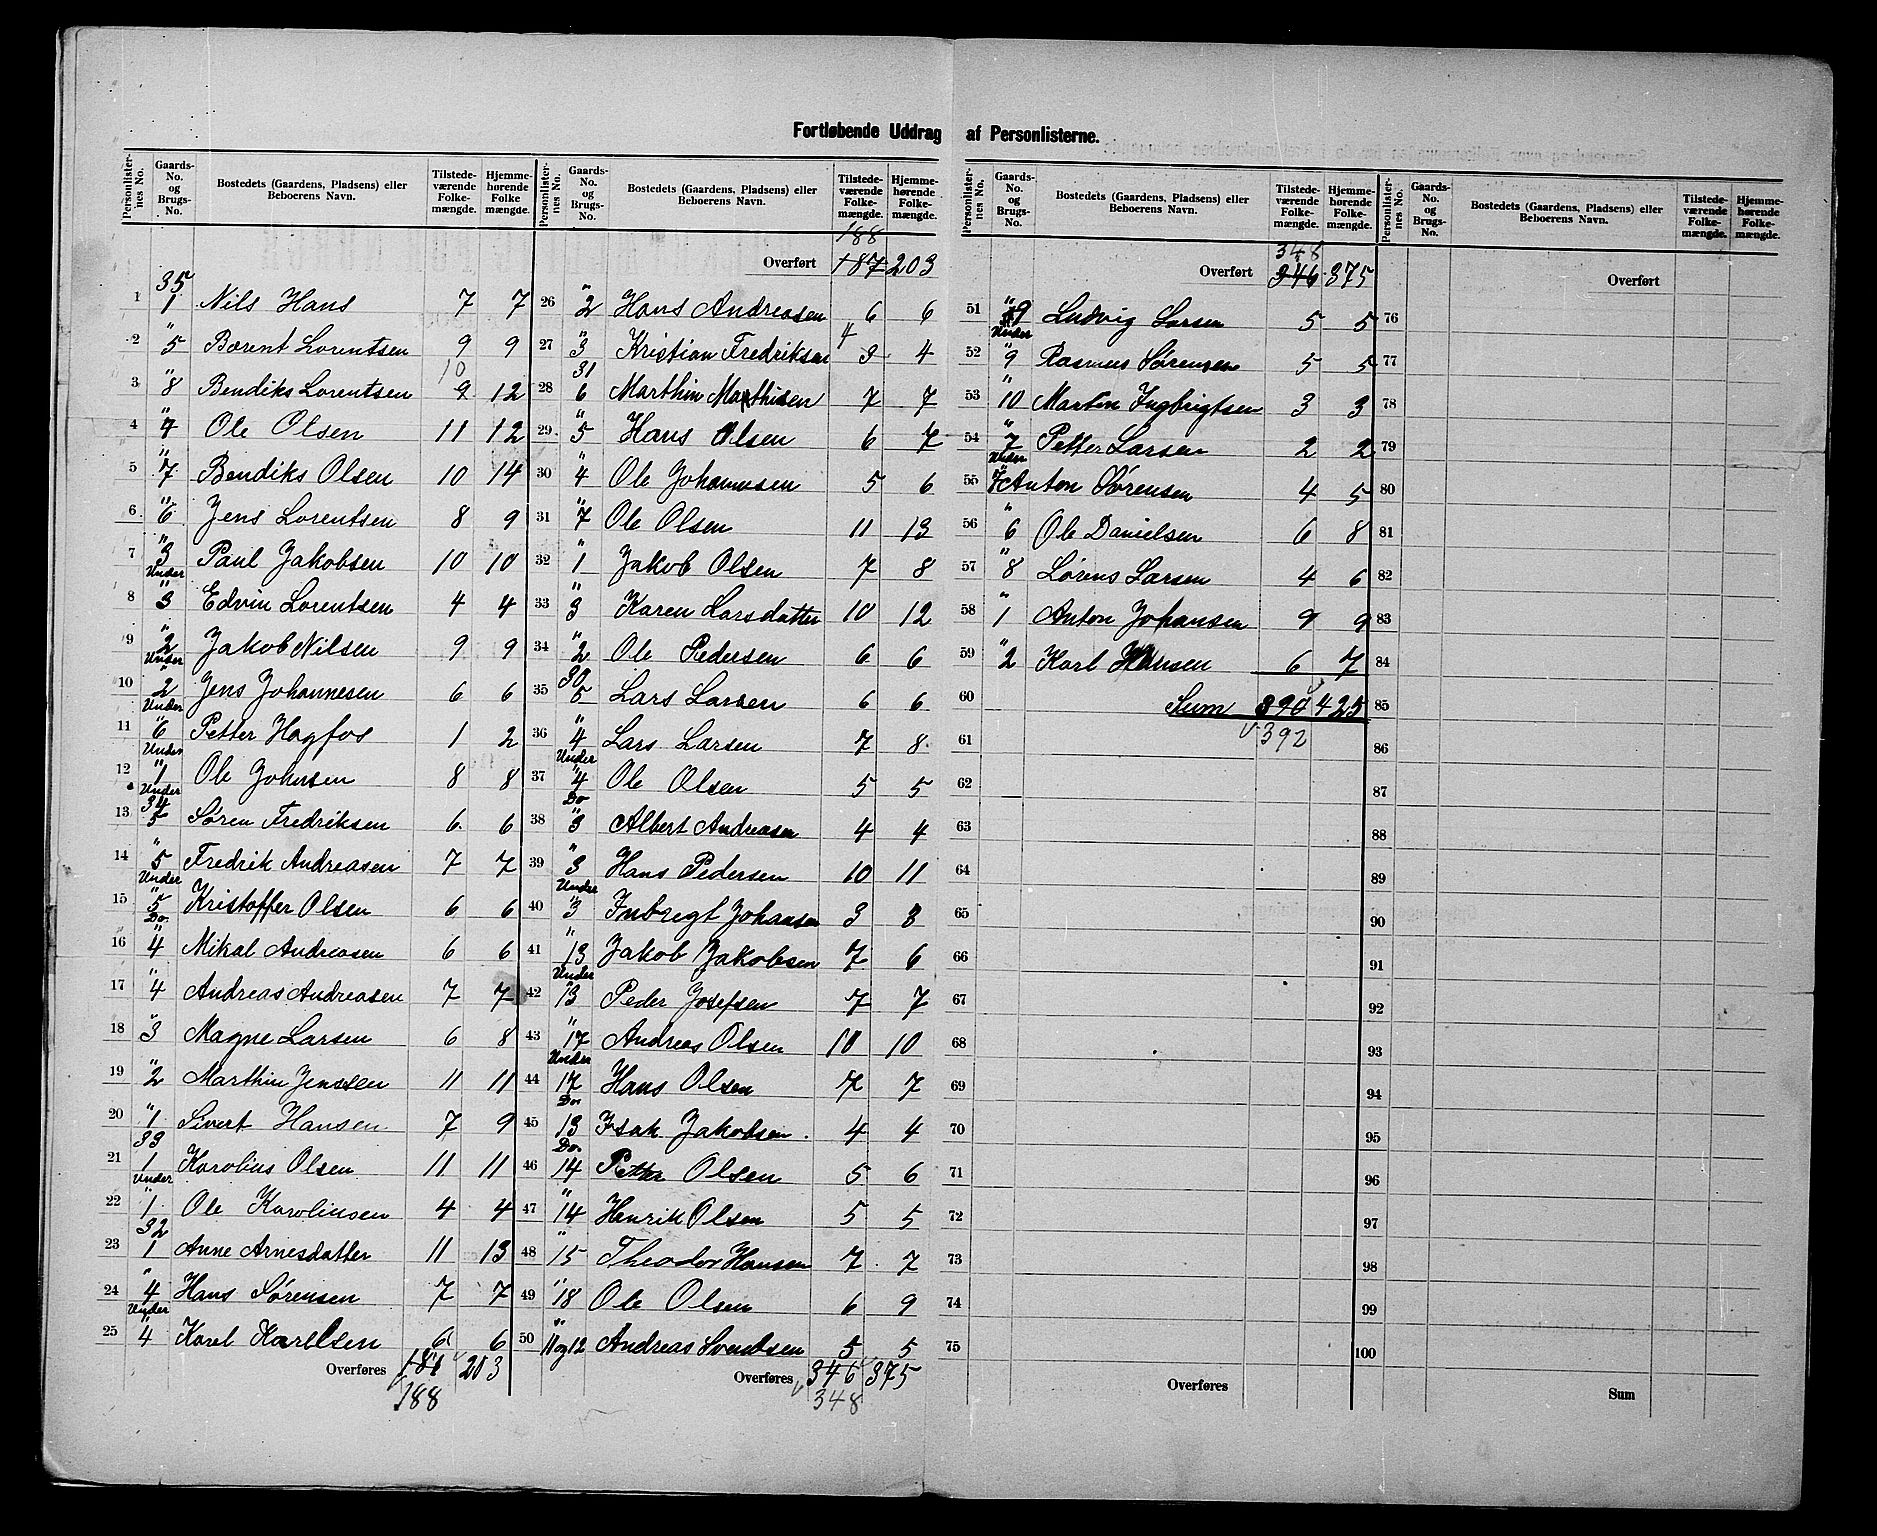 Fortløbende Uddrag af Personlisterne.
Personlister-nes No. Gaards-No. og Brugs-No. Bostedets (Gaardens, Pladsens) eller Beboerens Navn. Tilstede-værende Folke-mængde. Hjemme-hørende Folke mængde.
35
1 1 Nils Hans 7 7
2 " 5 Bærent Lorentsen 9 9
10
3 " 8 Bendiks Lorentsen 9 12
4 " 4 Ole Olsen 11 12
5 " 7 Bendiks Olsen 10 14
6 " 6 Jens Lorentsen 8 9
7 " 3 Paul Jakobsen 10 10
Under
8 " 3 Edvin Lorentsen 4 4
9 " 2 Jakob Nilsen 9 9
Under
10 " 2 Jens Johannesen 6 6
Under
11 " 6 Petter Hagfos 1 2
Under
12 " 1 Ole Johnsen 8 8
Under
34
13 5 Søren Fredriksen 6 6
14 " 5 Fredrik Andreasen 7 7
Under
15 " 5 Kristoffer Olsen 6 6
Do.
16 " 4 Mikal Andreasen 6 6
17 " 4 Andreas Andreasen 7 7
18 " 3 Magne Larsen 6 8
19 " 2 Marthin Jenssen 11 11
20 " 1 Sivert Hansen 7 9
33
21 1 Karolius Olsen 11 11
Under
22 " 1 Ole Karoliusen 4 4
32
23 1 Anne Arnesdatter 11 13
24 " 4 Hans Sørensen 7 7
Under
25 " 4 Karel Karelsen 6 6
Overføres 187 203
188
Personlister-nes No. Gaards-No. og Brugs-No. Bostedets (Gaardens, Pladsens) eller Beboerens Navn. Tilstede-værende Folke-mængde. Hjemme-hørende Folke-mængde.
188
Overført 187 203
26 " 2 Hans Andreasen 6 6
4
27 " 3 Kristian Fredriksen 3 4
31
28 6 Marthin Mathisen 7 7
29 " 5 Hans Olsen 6 7
30 " 4 Ole Johannesen 5 6
31 " 7 Ole Olsen 11 13
32 " 1 Jakob Olsen 7 8
33 " 3 Karen Larsdatter 10 12
34 " 2 Ole Pedersen 6 6
30
35 5 Lars Larsen 6 6
36 " 4 Lars Larsen 7 8
Under
37 " 4 Ole Olsen 5 5
Do
38 " 3 Albert Andreasen 4 4
39 " 3 Hans Pedersen 10 11
Under
40 " 3 Inbregt Johansen 3 3
41 " 13 Jakob Jakobsen 7 6
Under
42 " 13 Peder Josefsen 7 7
43 " 17 Andreas Olsen 10 10
Under
44 17 Hans Olsen 7 7
Do.
45 13 Isak Jakobsen 4 4
Do.
46 14 Petter Olsen 5 6
47 " 14 Henrik Olsen 5 5
48 " 15 Theodor Hansen 7 7
49 " 18 Ole Olsen 6 9
50 " 11og12 Andreas Svendsen 5 5
Overføres 346 375
348
Personlister-nes No. Gaards-No. og Brugs-No. Bostedets (Gaardens, Pladsens) eller Beboerens Navn. Tilstede-værende Folke-mængde. Hjemme-hørende Folke-mængde.
348
Overført 346 375
51 " 9 Ludvig Larsen 5 5
Under
52 " 9 Rasmus Sørensen 5 5
53 " 10 Martin Ingbrigtsen 3 3
54 " 7 Petter Larsen 2 2
Under
55 " 7 Anton Sørensen 4 5
56 " 6 Ole Danielsen 6 8
57 " 8 Lørens Larsen 4 6
58 " 1 Anton Johansen 9 9
59 " 2 Karl Hansen 6 7
60 Sum 390 425
61 392
62
63
64
65
66
67
68
69
70
71
72
73
74
75
Overføres
Personlister-nes No. Gaards-No. og Brugs-No. Bostedets (Gaardens, Pladsens) eller Beboerens Navn. Tilstede-værende Folke-mængde. Hjemme-hørende Folke-mængde.
Overført
76
77
78
79
80
81
82
83
84
85
86
87
88
89
90
91
92
93
94
95
96
97
98
99
100
Sum